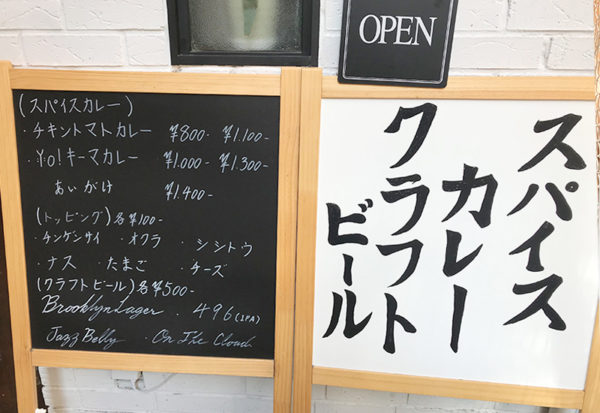 OPEN
(スパイスカレー)
・チキントマトカレー ¥800- ¥1.100-
・Yo!キーマカレー ¥1.000- ¥1.300-
あいがけ ¥1.400-
(トッピング)各¥100-
・チンゲンサイ ・オクラ ・シシトウ
・ナス ・たまご ・チーズ
(クラフトビール)各¥500-
BrooklynLager ・496(IPA)
Jazz Belly ・On The Cloud
スパイス
カレー
クラフト
ビール